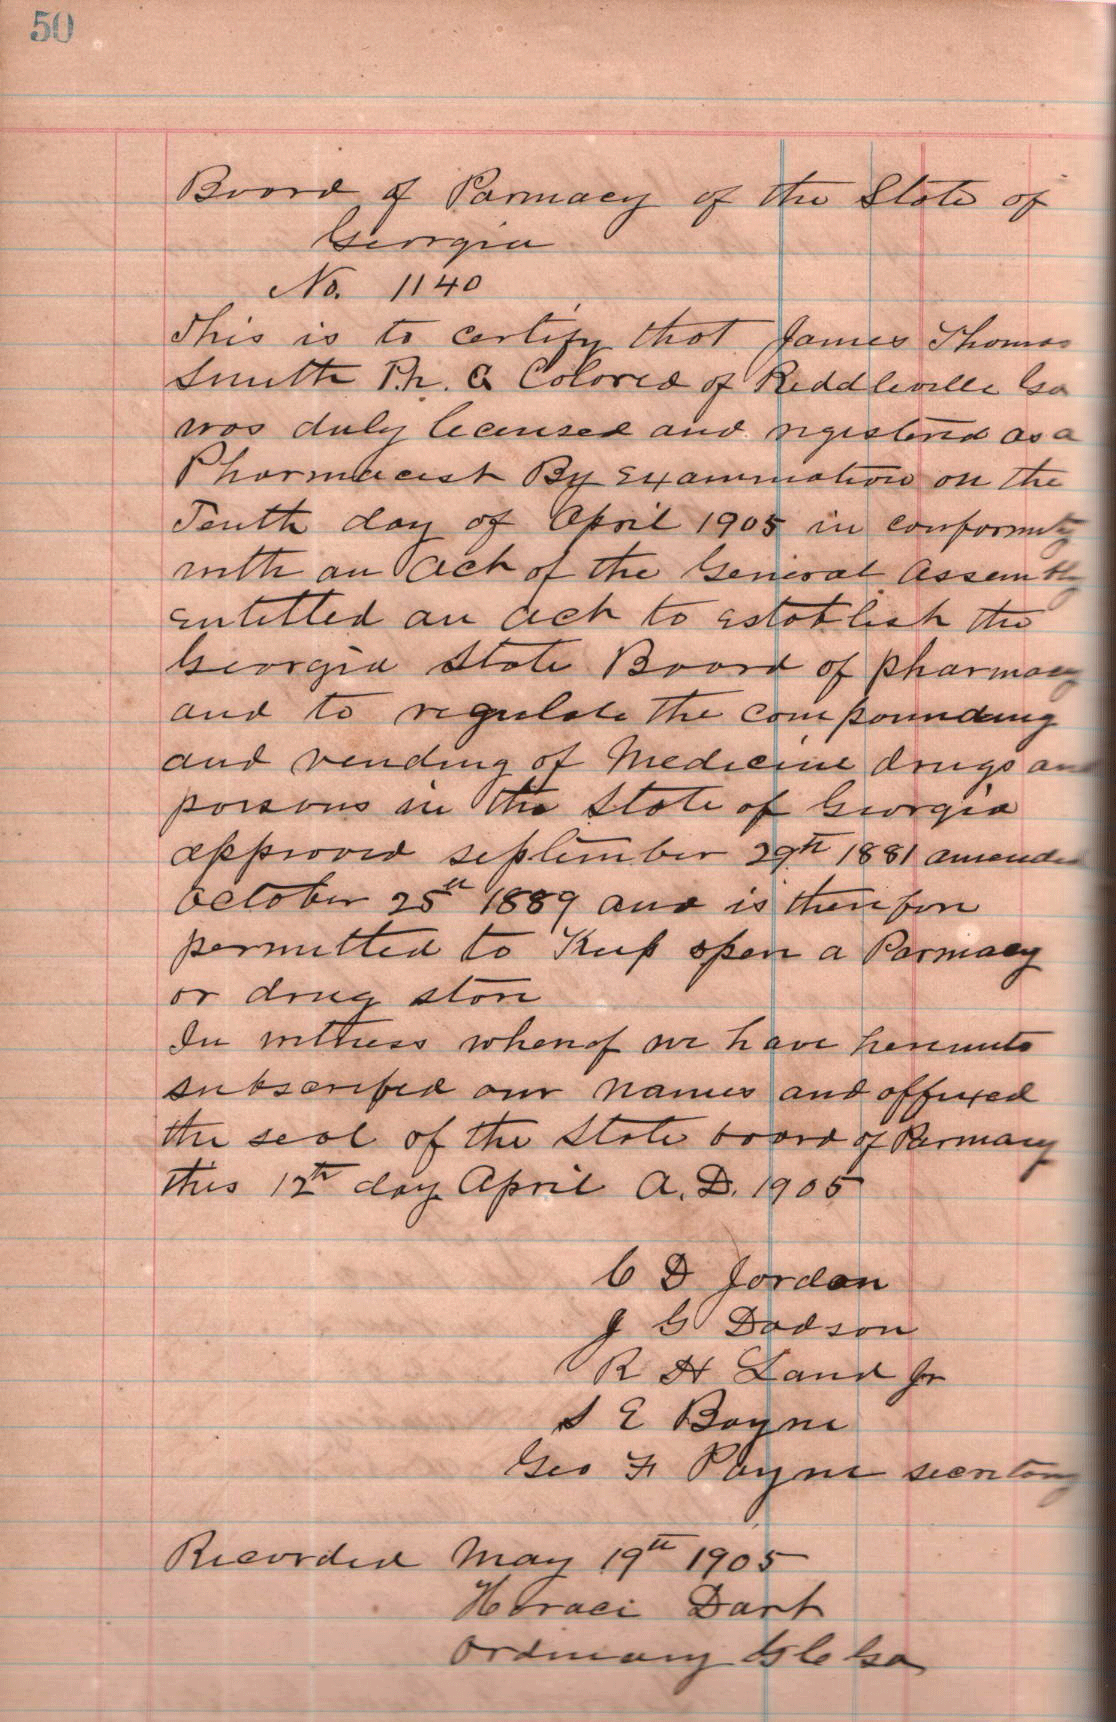 50
Board of Parmacy of the State of
Georgia
No. 1140
This is to certify that James Thomas
Smith Ph. G Colored of Riddleville Ga
was duly licensed and registered as a
Pharmacist By Examination on the
Tenth day of April 1905 in conformity
with an Act of the General Assembly
entitled an act to establish the
Georgia State Board of pharmacy
and to regulate the compounding
and vending of Medicine drugs and
poisons in the State of Georgia
approved september 29th 1881 amended
October 25th 1889 and is therefore
permitted to Keep open a Parmacy
or drug store
In witness whereof we have hereunto
subscribed our names and affixed
the seal of the State board of Parmacy
this 12th day April A. D. 1905
C D Jordan
J G Dodson
R H Land Jr
S E Bayne
Geo F Payne secretary
Recorded May 19th 1905
Horace Dart
Ordinary G C Ga